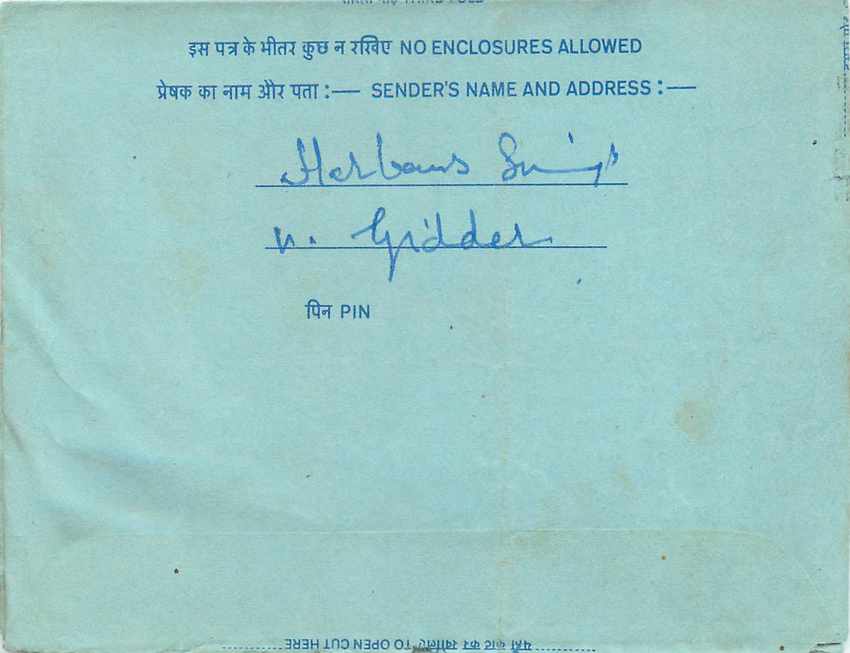 इस पत्र के भीतर कुछ न रखिए NO ENCLOSURES ALLOWED
प्रेषक का नाम और पता :— SENDER'S NAME AND ADDRESS :—
Harbans Singh
V. Gidder
पिन PIN
यहाँ काट कर खोलिए TO OPEN CUT HERE